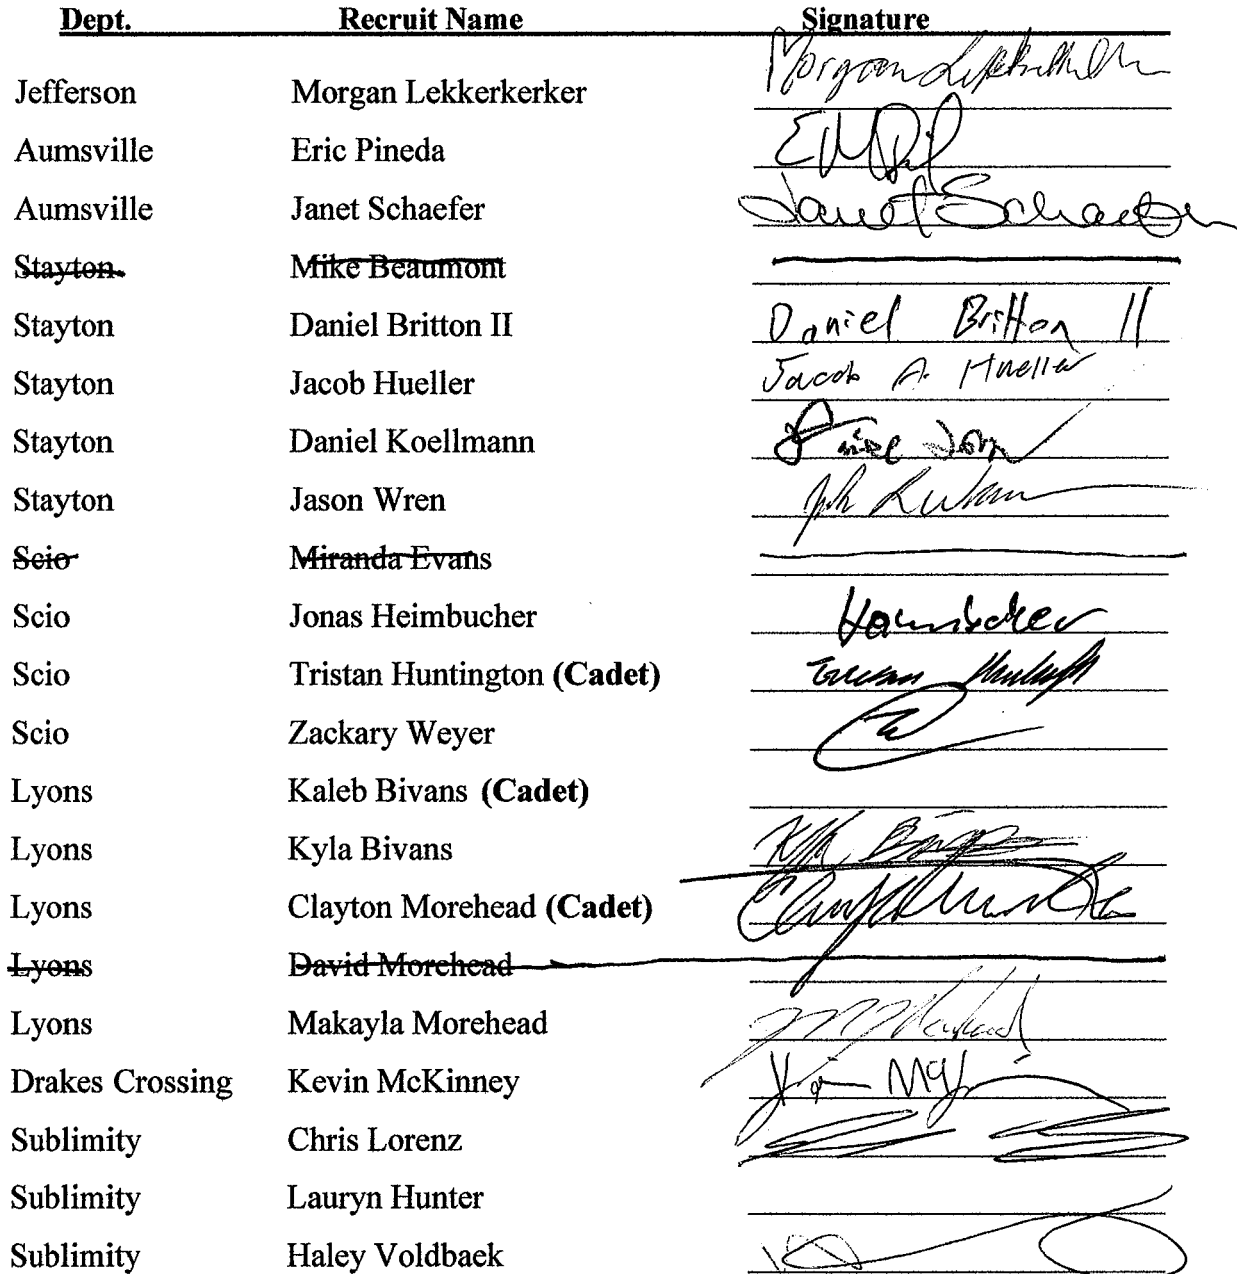 Dept. Recruit Name Signature
Jefferson Morgan Lekkerkerker Morgan
Aumsville Eric Pineda
Aumsville Janet Schaefer Janet Schaefer
Stayton Mike Beaumont
Stayton Daniel Britton II Daniel Britton II
Stayton Jacob Hueller Jacob A. Hueller
Stayton Daniel Koellmann
Stayton Jason Wren
Scio Miranda Evans
Scio Jonas Heimbucher
Scio Tristan Huntington (Cadet)
Scio Zackary Weyer
Lyons Kaleb Bivans (Cadet)
Lyons Kyla Bivans
Lyons Clayton Morehead (Cadet)
Lyons David Morehead
Lyons Makayla Morehead
Drakes Crossing Kevin McKinney
Sublimity Chris Lorenz
Sublimity Lauryn Hunter
Sublimity Haley Voldbaek